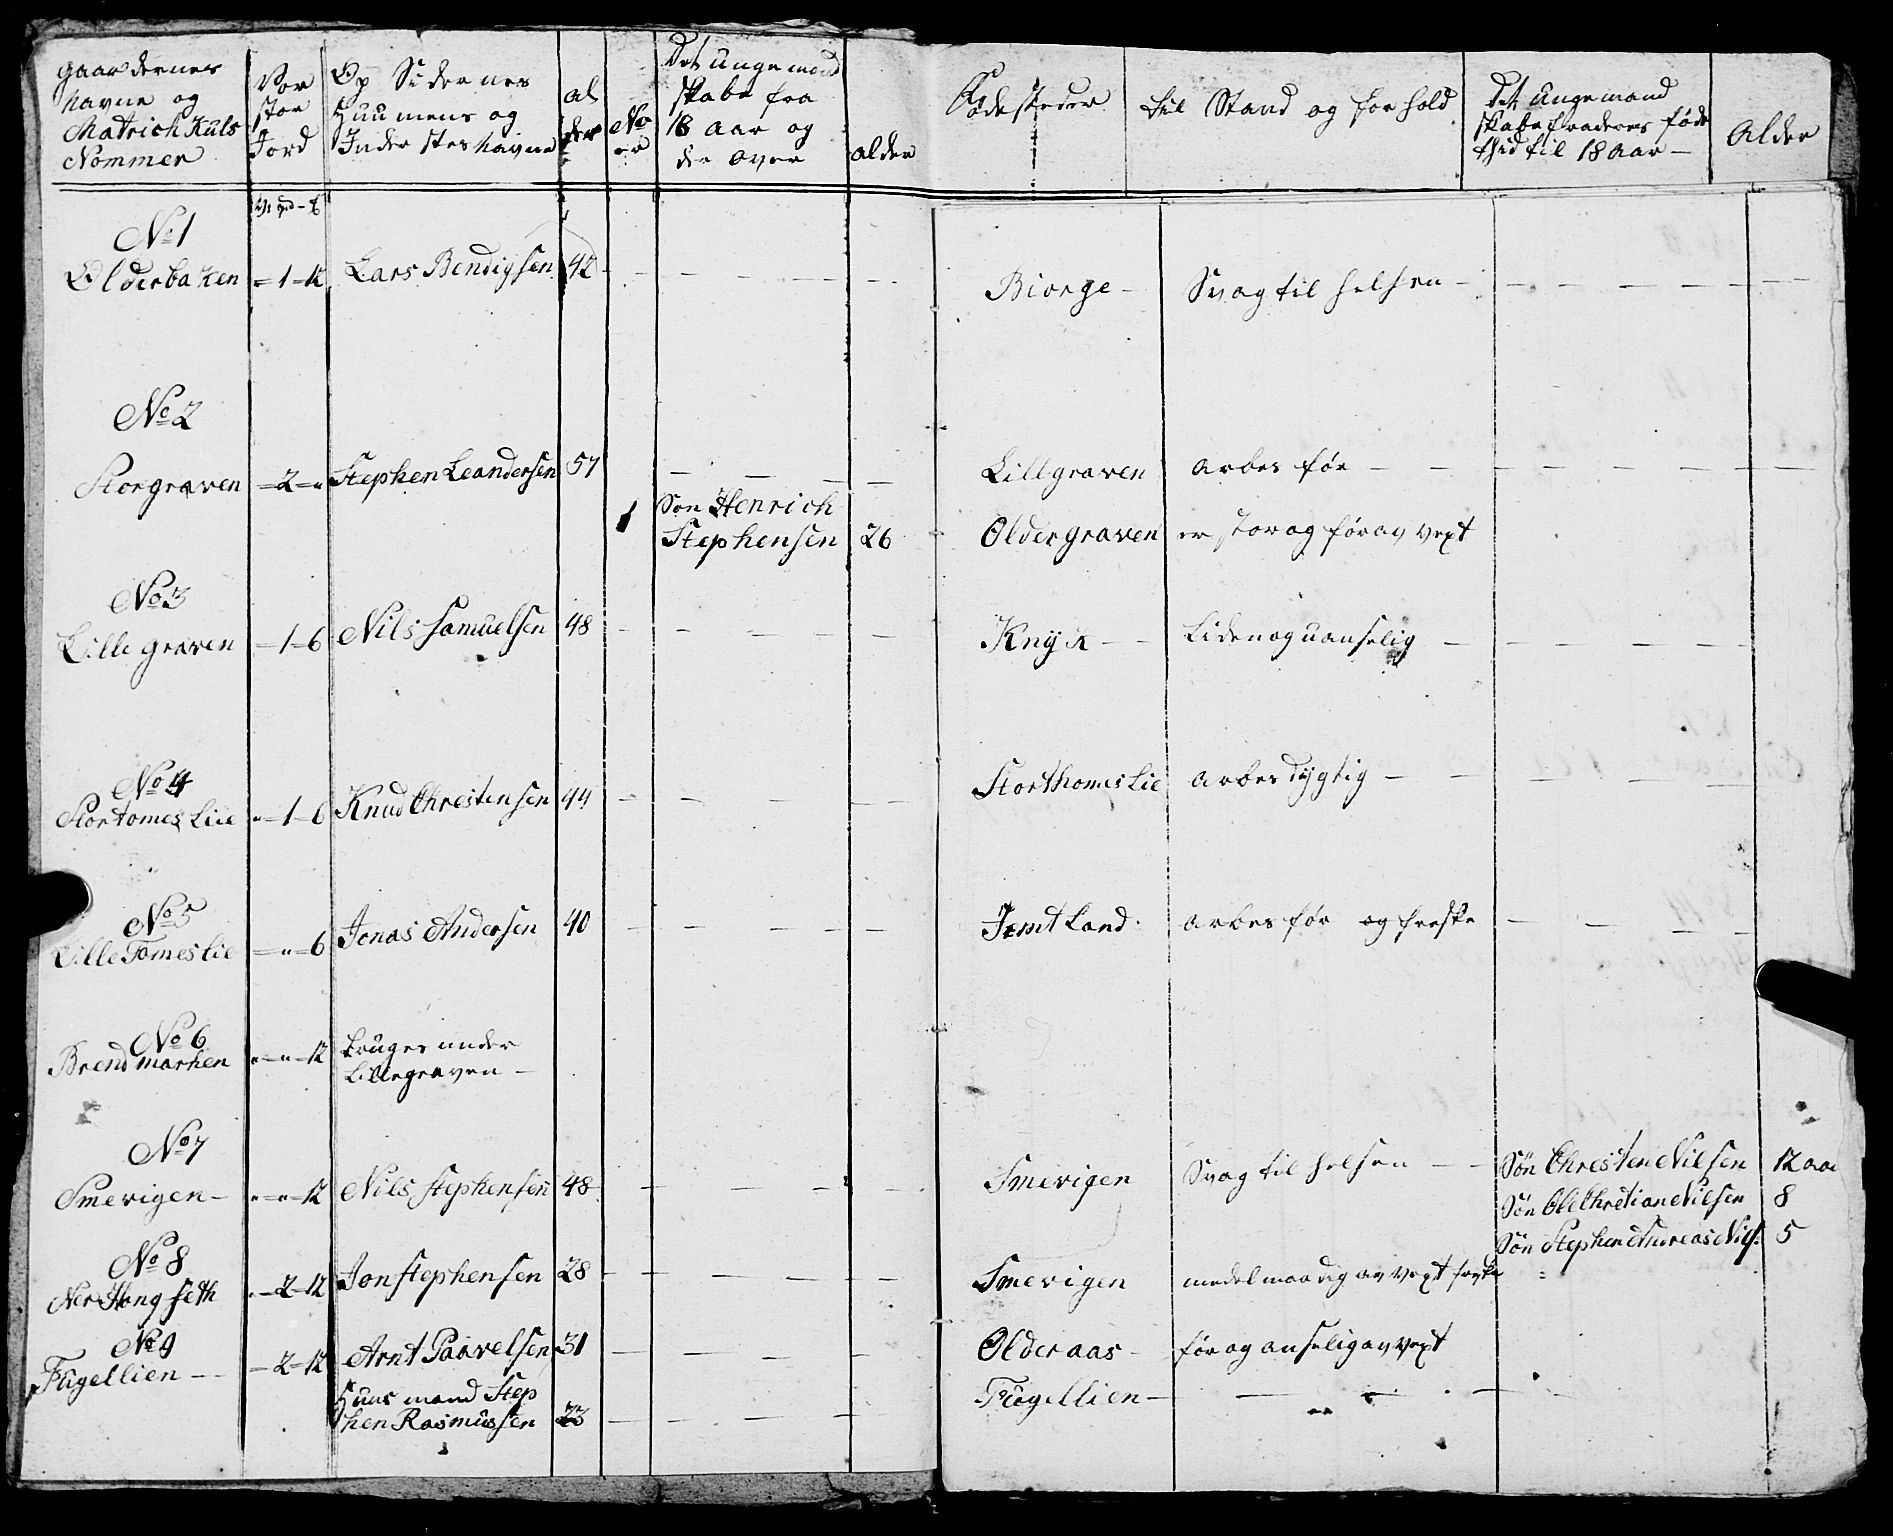 Gaardernes
Navne og
Matrich Kuls
Nommer
Vor
stor
Jord
Op Sidernes
Huusmens og
Inderstes Navne
al
der
No
er
Det unge mand
skabe fra
18 Aar og
der over
alder
Fødesteder
til Stand og forhold
Det unge mand
skabe fra deres føde
thid til 18 aar
Alder
No 1
Olderbaken =1=12 Lars Bendigsen 42 Biorge Svag til helsen
No 2
Storgraven =2= Stephen Leandersen 57 Lillgraven arbes før
1 Søn Henrich
Stephensen 26 Oldergraven er stor og før av vext
No 3
Lille graven =1=6 Nils Samuelsen 48 Knyk Liden og uanselig
No 4
Stortomes Liie =1=6 Knud Chrestensen 44 Storthomes Lie arbes dygtig
No 5
Lille Tomes Lie =6 Jonas Andersen 40 Jemtland arbes før og freske
No 6
Brend marken =12 bruges under
Lillegraven
No 7
Smevigen =12 Nils Stephensen 48 Smevigen Svag til helsen Søn Christen Nilsen 12 aar
Søn Ole Chretian Nilsen 8
Søn Stephen Andreas Nils: 5
No 8
Ner Hongseth =2=12 Jon Stephensen 28 Smevigen medelmaadig av vext
No 9
Fugellien =2=12 Arnt Paavelsen 31 Olderaas før og anselig av vext
Huusmand Step
hen Rasmussen 33 Fugellien